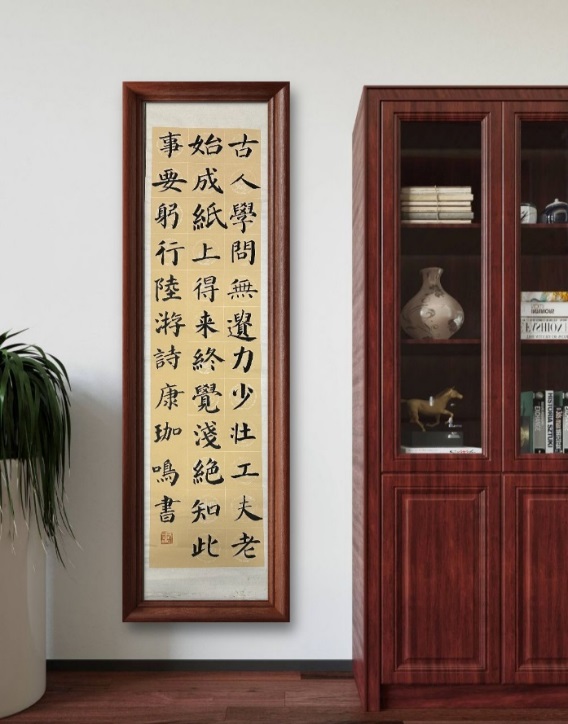 古人學問無遺力少壯工夫老
始成紙上得来終覺淺絕知此
事要躬行陸游詩康珈鳴書
HISTORIA SZTUKI
FASHION